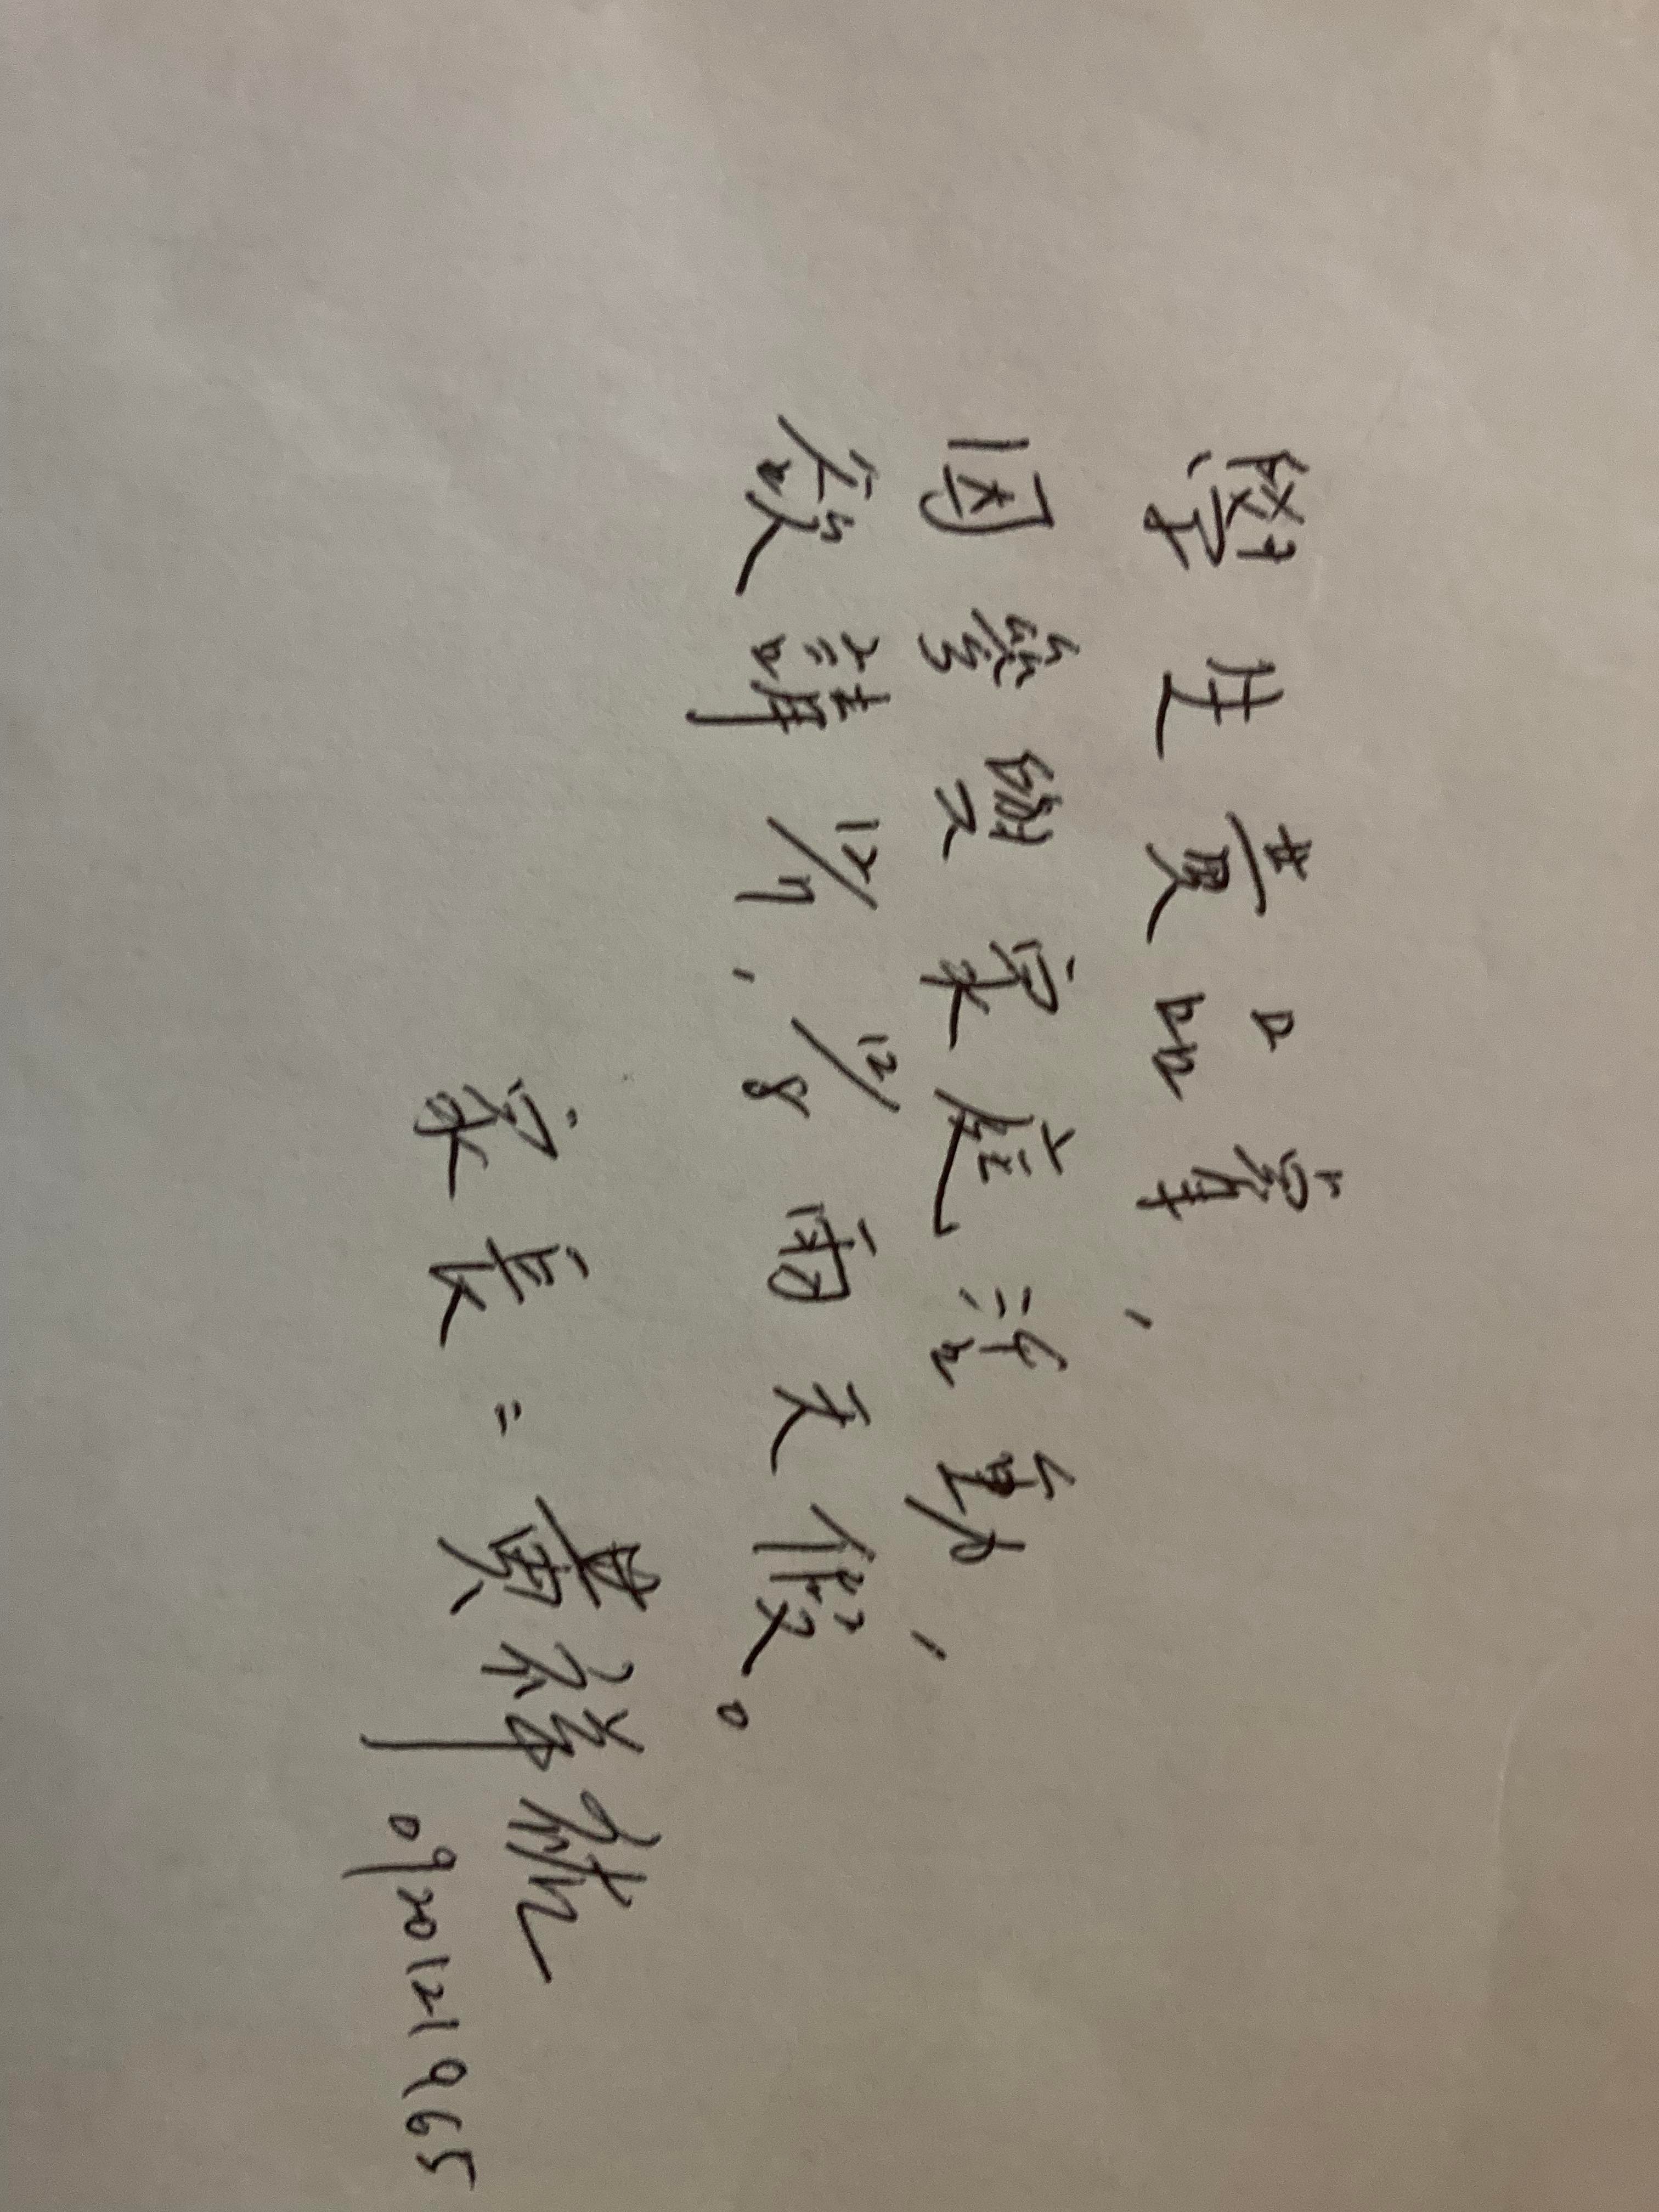 學生黃品睿,
因參與家庭活動,
欲請12/7,12/8兩天假。
家長:黃祥祐
0920121965